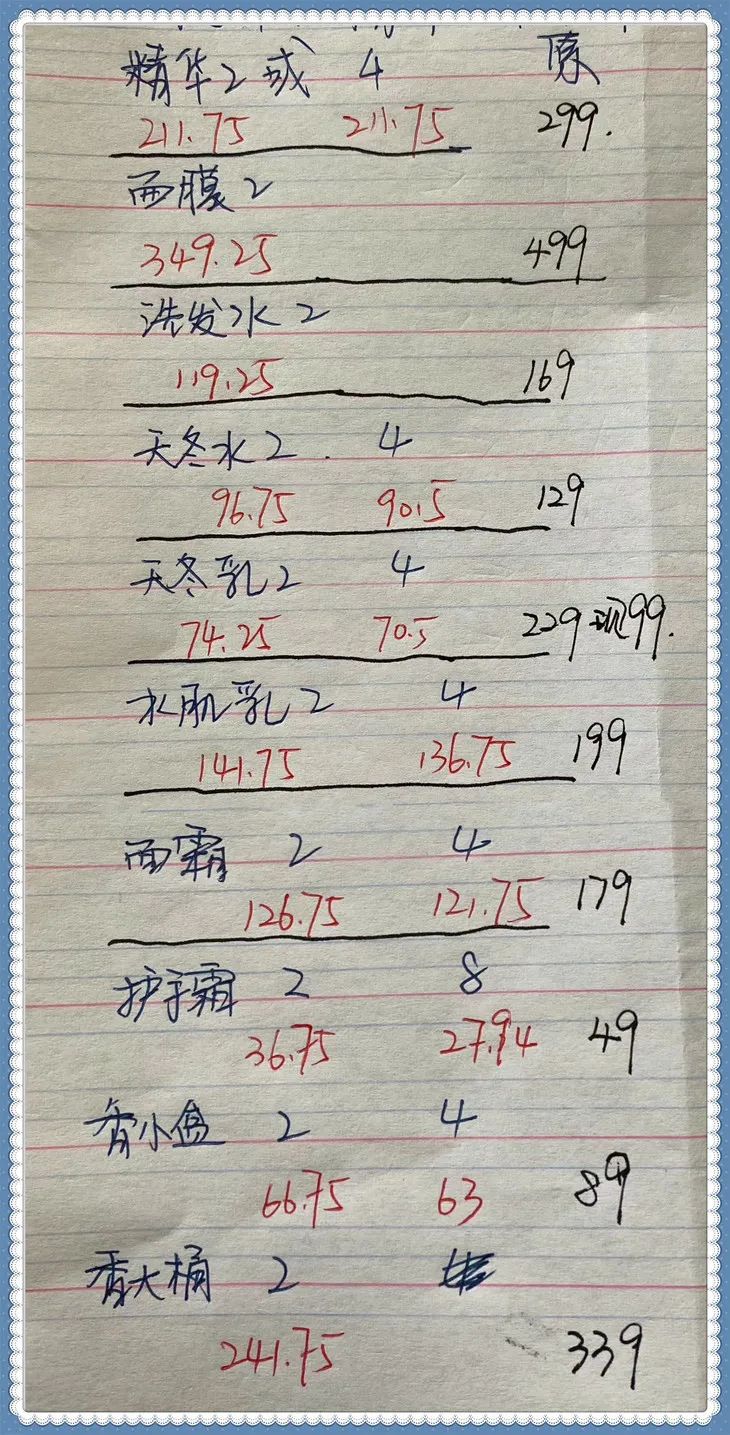 精华2或 4 原
211.75 211.75 299.
面膜2
349.25 499
洗发水2
119.25 169
天冬水2. 4
96.75 90.5 129
天冬乳2 4
74.25 70.5 229现99.
水肌乳2 4
141.75 136.75 199
面霜 2 4
126.75 121.75 179
护手霜 2 8
36.75 27.94 49
香小盒 2 4
66.75 63 89
香大桶 2
241.75 339